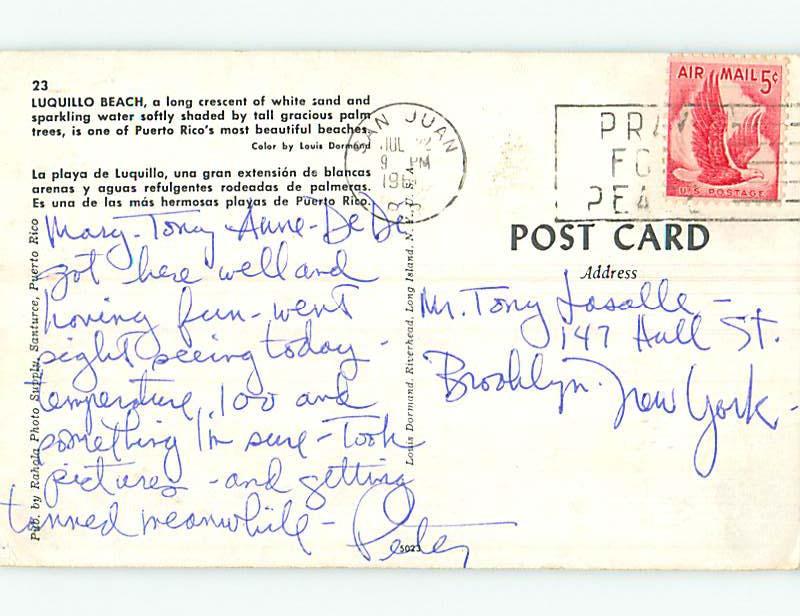 23
LUQUILLO BEACH, a long crescent of white sand and
sparkling water softly shaded by tall gracious palm
trees, is one of Puerto Rico's most beautiful beaches.
Color by Louis Dormand
La playa de Luquillo, una gran extensión de blancas
arenas y aguas refulgentes rodeadas de palmeras.
Es una de las más hermosas playas de Puerto Rico.
Mary-Tony Anne-DeDe
got here well and
having fun-went
sight seeing today-
temperature 100 and
something I'm sure-Took
pictures-and getting
tanned meanwhile-
Peter
Pub. by Rahola Photo Supply, Santurce, Puerto Rico
Louis Dormand, Riverhead, Long Island, N. Y., U.S.A.
S023
SAN JUAN
JUL 22
9 PM
196
P. R.
PRAY
FOR
PEACE
AIR MAIL 5¢
U.S. POSTAGE
POST CARD
Address
Mr. Tony Lasalle-
147 Hull St.
Brooklyn. New York-